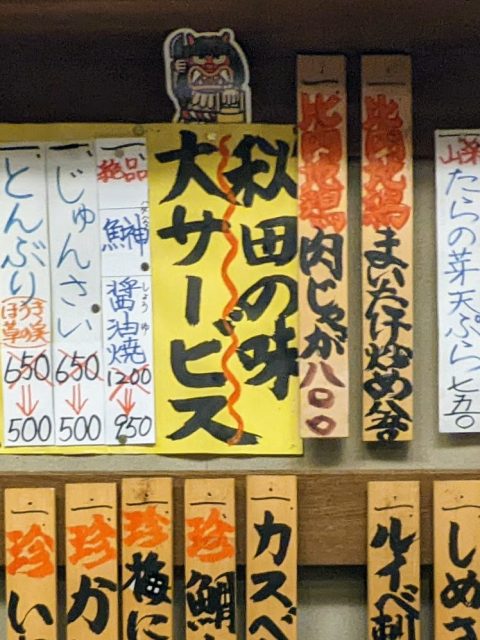 山菜
たらの芽天ぷら七五〇
比内地鶏
まいたけ炒め
比内地鶏
肉じゃが八〇〇
秋田の味
大サービス
絶品
鰰
醤油焼
しょうゆ
1200
950
じゅんさい
650
500
とんぶり
ほうき草の実
650
500
しめさ
ルイベ刺
カスベ
珍
鯛
珍
梅に
珍
か
珍
い